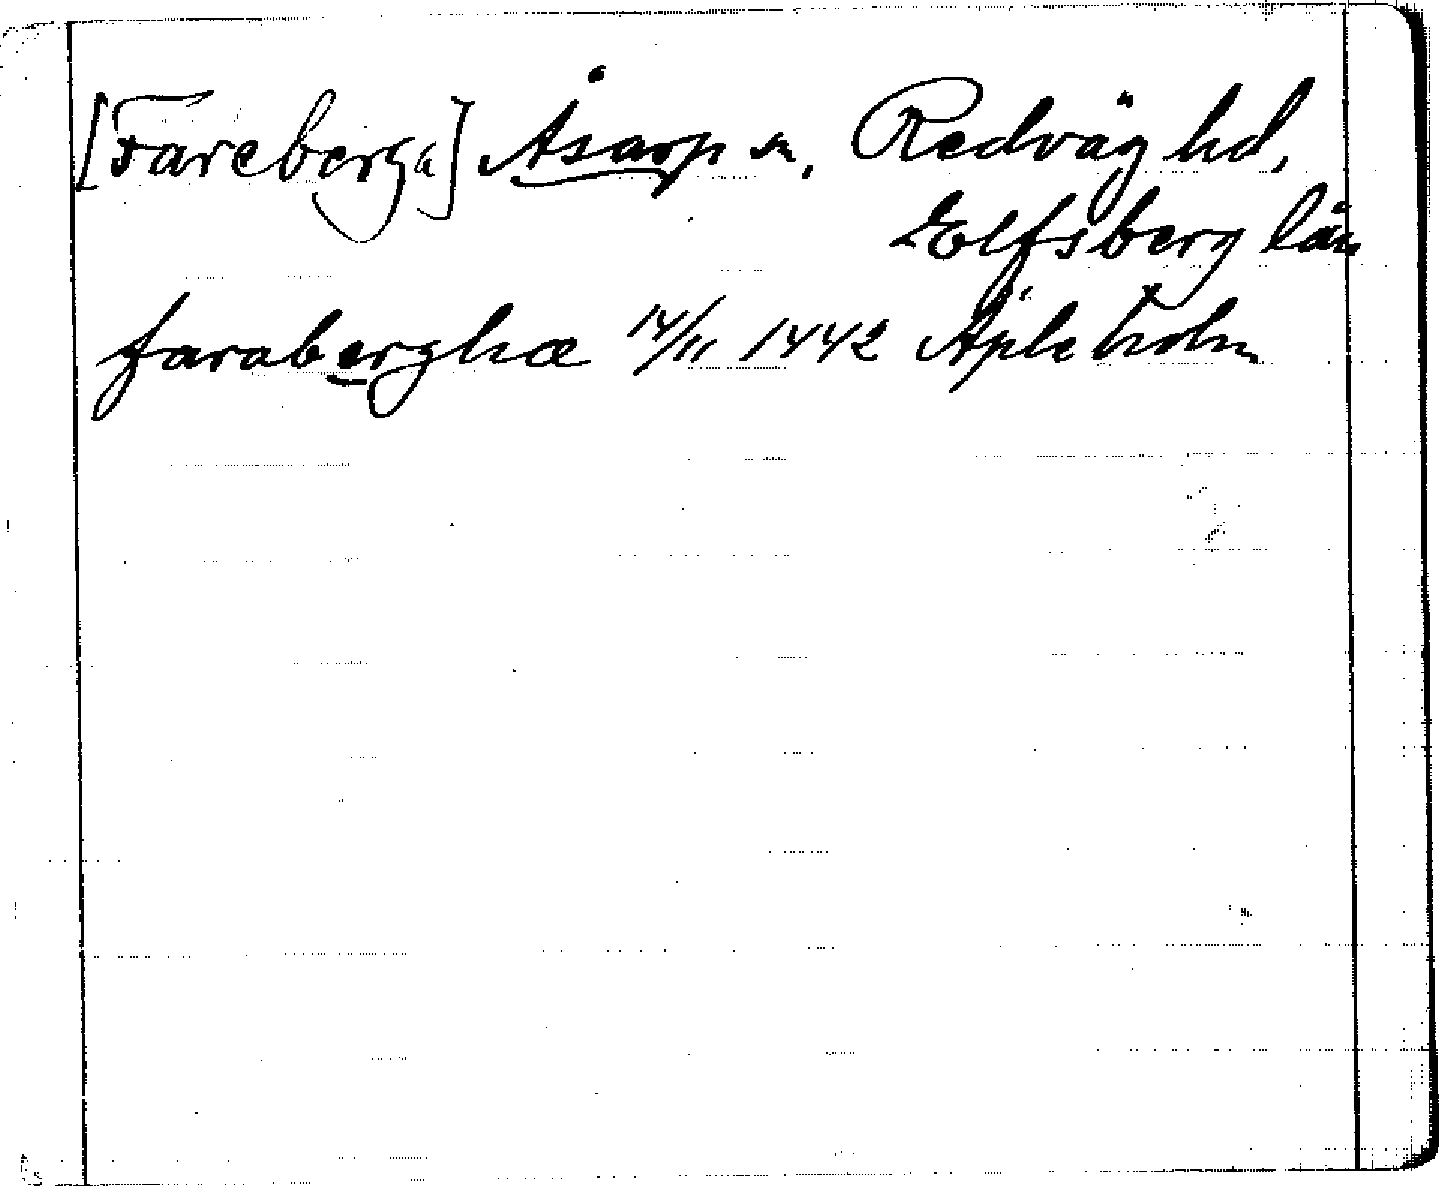 [Fareberga] Åsarp sn, Redväg hd,
Elfsberg län
faraberghæ 14/11 1442 Äpleholm